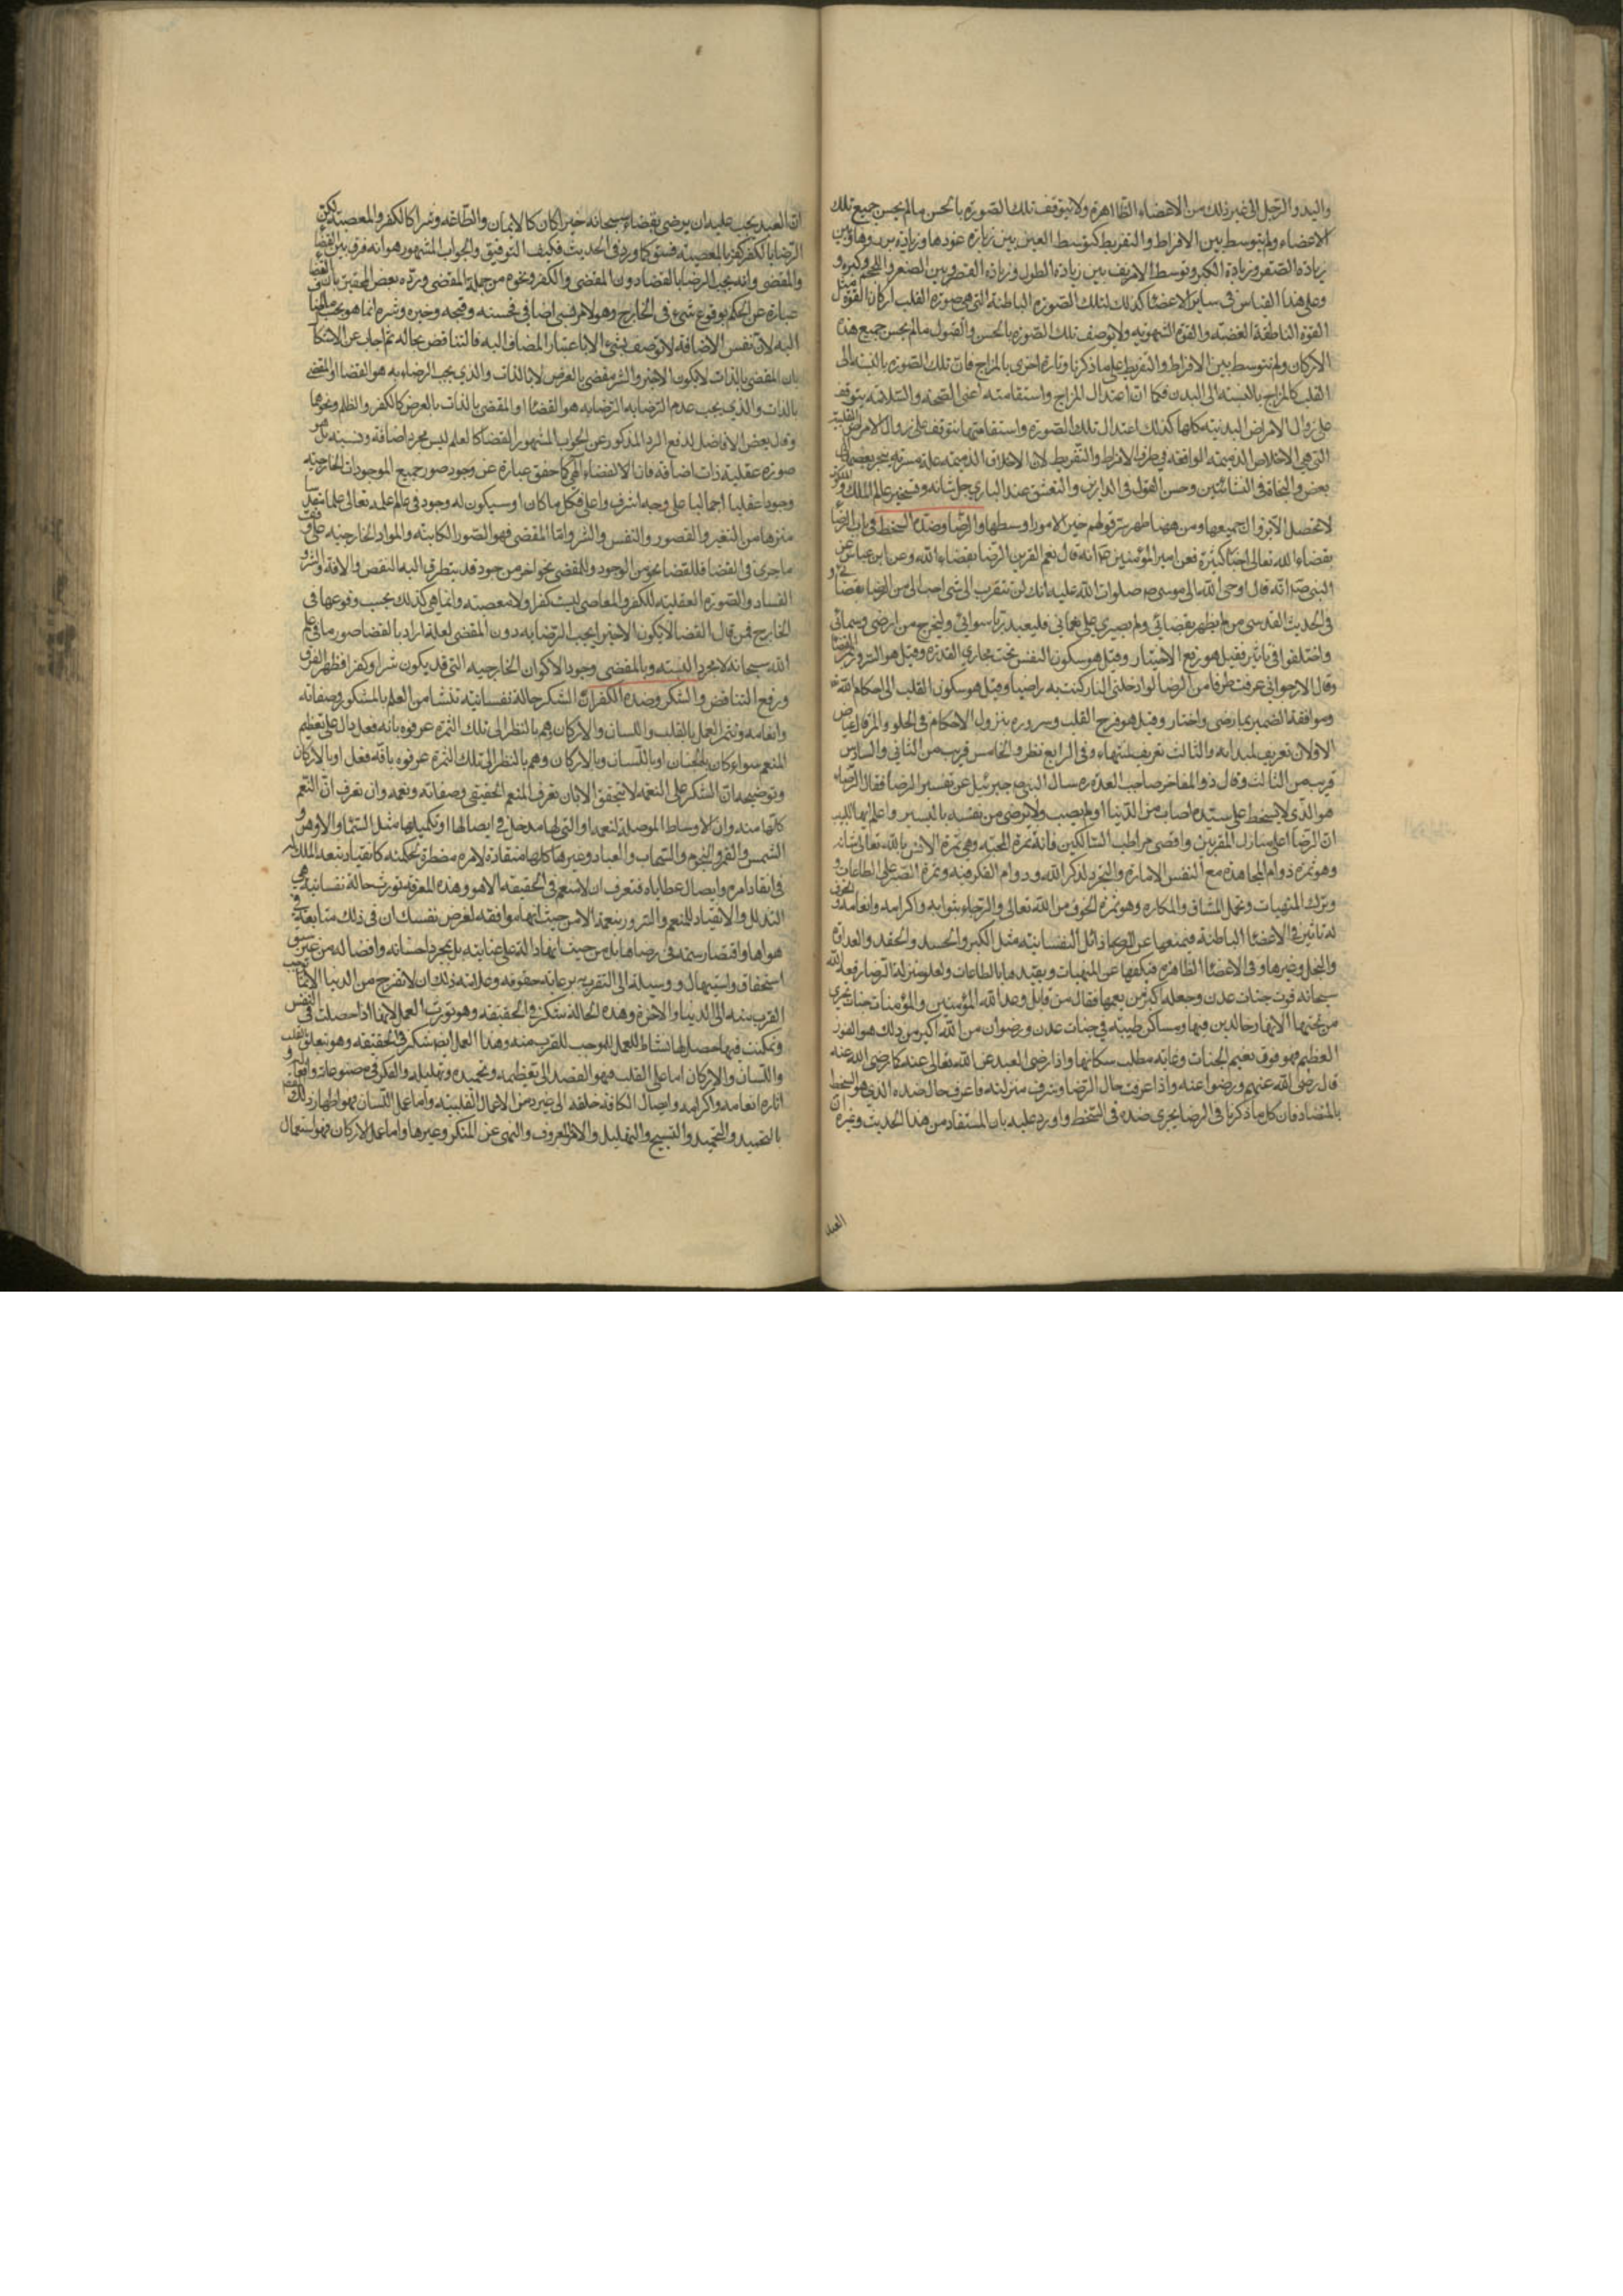 واليد والرجل الى غير ذلك من الاعضاء الظاهرة ولا يتوقف تلك الصورة بالحسن ما لم يحسن جميع تلك
الاعضاء ولم يتوسط بين الافراط والتفريط كتوسط العين بين زيادة غورها وزيادة بروزها وبين
زيادة الصغر وزيادة الكبر وتوسط الانف بين زيادة الطول وزيادة القصر وبين الصغر و
وعلى هذا القياس في ساير الاعضا كذلك لتلك الصورة الباطنة التي هي صورة القلب اركانا القوة مثل
القوة الناطقة الغضبية والقوة الشهوية ولا يوصف تلك الصورة بالحسن والقبول ما لم يحسن جميع هذه
الاركان ولم يتوسط بين الافراط والتفريط على ما ذكرنا وتارة اخرى بالمزاج فان تلك الصورة بالنسبة الى
القلب كالمزاج بالنسبة الى البدن فكما ان اعتدال المزاج واستقامته اعنى الصحة والسلامة يتوقف
على زوال الامراض البدنية كلها كذلك اعتدال تلك الصورة واستقامتها يتوقف على زوال الامراض القلبية
التي هي الاخلاق الذميمة الواقعة في طرف الافراط والتفريط لان الاخلاق الذميمة علة مسرية ينجر بعضها الى
بعض والنجاة في النشأتين وحسن القول في الدارين والتعشق عند الباري جل شانه وتسخير عالم الملك و
لا تحصل الا بزوال جميعها ومن هنا ظهر سر قولهم خير الامور اوسطها والرضا وضده السخط في باب الرضا
بقضاء الله تعالى اخبار كثيرة فعن امير المؤمنين ع انه قال نعم القرين الرضا بقضاء الله وعن ابن عباس عن
النبي ص انه قال اوحى الله الى موسى ص صلوات الله عليه انك لن تتقرب الى بشئ احب الى من الرضا بقضائى و
في الحديث القدسي من لم يرض بقضائي ولم يصبر على بلائي فليعبد ربا سوائي وليخرج من ارضي وسمائي
واختلفوا في فقيل هو رفع الاختيار وقيل هو سكون النفس تحت مجاري القدرة وقيل هو السرور بمر القضا
وقال الارجواني عرفت طرفا من الرضا لو ادخلني النار كنت به راضيا وقيل هو سكون القلب الى احكام الله
وموافقة الضمير بما رضى واختار وقيل هو فرح القلب وسروره بنزول الاحكام في الحلو والمر قال عياض
الاولان تعريف لمبدأه والثالث تعريف لمنتهاه وفي الرابع نظر والخامس قريب من الثاني والسادس
قريب من الثالث وقال ذو المفاخر صاحب العدة ره سال النبي ص جبرئيل عن تفسير الرضا فقال الرضاء
هو الذي لا يسخط على سيده اصاب من الدنيا او لم يصب ولا يرضى من نفسه باليسير واعلم ايها اللبيب
ان الرضا اعلى منازل المقربين واقصى مراتب السالكين فانه ثمرة المحبة وهي ثمرة الانس بالله تعالى شانه
وهو ثمرة دوام المجاهدة مع النفس الامارة والتجرد لذكر الله ودوام الفكر فيه وثمرة الصبر على الطاعات
وترك المنهيات وتحمل المشاق والمكاره وهو ثمرة الخوف من الله تعالى والرجاء بثوابه واكرامه وانعامه
له تاثير في الاعضا الباطنة فيمنعها عن الرذائل النفسانية مثل الكبر والحسد والحقد والعداوة
والبخل وغيرها وفي الاعضا الظاهرة فيكفها عن المنهيات ويقيدها بالطاعات ولعلو منزلة الرضا رفعه الله
سبحانه فوق جنات عدن وجعله اكبر من نعيمها فقال من قايل وعد الله المؤمنين والمؤمنات جنات تجري
من تحتها الانهار خالدين فيها ومساكن طيبة في جنات عدن ورضوان من الله اكبر من ذلك هو الفوز
العظيم فهو فوق نعيم الجنات وغاية مطلب سكانها واذا رضى العبد عن الله تعالى عنه كما رضى الله عنه
قال رضى الله عنهم ورضوا عنه واذا عرفت حال الرضا وشرف منزلته فاعرف حال ضده الذي هو السخط
بالتضاد فان كل ما ذكرنا في الرضا يجري ضده في السخط واورد عليه بان المستفاد من هذا الحديث وغيره ان
العبد
ان العبد يجب عليه ان يرضى بقضاء سبحانه خيرا كان كالايمان والطاعة وشرا كالكفر والمعصية لكن
الرضا بالكفر كفر بالمعصية فسق كما ورد في الحديث فكيف التوفيق والجواب المشهور هو انه فرق بين القضاء
والمقضى وانه يجب الرضا بالقضا دون المقضى والكفر ونحوه من جملة المقضى ورده بعض المحققين بان القضا
عبارة عن الحكم بوقوع شئ في الخارج وهو امر نسبى اضافى فحسنه وقبحه وخيره وشره انما هو بحسب ما
اليه لان نفس الاضافة لا توصف بشئ الا باعتبار المضاف اليه فالتناقض بحاله ثم اجاب عن الاشكال
بان المقضى بالذات لا يكون الا خيرا والشر مقضى بالعرض لا بالذات والذي يجب الرضاء به هو القضا او المقضى
بالذات والذي يجب عدم الرضا به هو القضا او المقضى بالذات بالعرض كالكفر والظلم ونحوهما
وقال بعض الافاضل لدفع الرد المذكور عن الجواب المشهور القضا كالعلم ليس مجرد اضافة ونسبة بل هو
صورة عقلية ذات اضافة فان القضاء الهى كما حقق عبارة عن وجود صور جميع الموجودات الخارجية
وجودا عقليا اجماليا على وجه اشرف واعلى فكل ما كان او سيكون له وجود في عالم علمه تعالى علما
منزها من التغير والقصور والنقص والشر واما المقضى فهو الصور الكاينة والمواد الخارجية على وفق
ما جرى في القضا فللقضا نحو من الوجود وللمقضى نحو اخر من جود قد يتطرق اليه النقص والافة والشر
الفساد والصورة العقلية للكفر والمعاصى ليست كفرا ولا معصية وانما هي كذلك بحسب وقوعها في
الخارج فمن قال القضا لا يكون الا خيرا يجب الرضا به دون المقضى لعله اراد بالقضا صور ما في علم
الله سبحانه لا مجرد النسبة وبالمقضى وجود الاكوان الخارجية التي قد يكون شرا وكفرا فظهر الفرق
ورفع التناقض والشكر وضده الكفران الشكر حالة نفسانية تنشا من العلم بالمشكور وصفاته
وانعامه وتثمر العمل بالقلب واللسان والاركان وهم بالنظر الى تلك الثمرة عرفوه بانه فعل دال على تعظيم
المنعم سواء كان بالجنان او باللسان وبالاركان وهم بالنظر الى تلك الثمرة عرفوه بانه فعل او بالاركان
وتوضيحه ان الشكر على النعمة لا يتحقق الا بان تعرف المنعم الحقيقى وصفاته ونعمه وان تعرف ان النعم
كلها منه وان الاوساط الموصلة لنعمه او التي لها مدخل في ايصالها او تكميلها مثل السماء والارض و
الشمس والقمر والنجوم والسحاب والعباد وغيرها كلها منقادة لامره مضطرة بحكمته كانقياد
في انفاذ امره وايصال عطاياه فتعرف ان لا منعم في الحقيقة الا هو وهذه المعرفة تورث حالة نفسانية هي
التذلل والانقياد للمنعم والسرور بنعمه لا من حيث انها موافقة لغرض نفسك ان في ذلك متابعة
هواها واقتصار همته في رضاها بل من حيث انها دالة على عنايته بل بمجرد احسانه وافضاله من غير
استحقاق واستيهال ووسيلة الى التقرب برعاية حقوقه وعلامة ذلك ان لا تفرح من الدنيا الا بما يوجب
القرب منه الى الدنيا والاخرة وهذه الحالة شكر في الحقيقة وهو تورث العمل لانها اذا حصلت في النفس
وتمكنت فيها حصل لها نشاط للعمل الموجب للقرب منه وهذا العمل ايضا شكر في الحقيقة وهو يتعلق بالقلب
واللسان والاركان اما على القلب فهو القصد الى تعظيمه وتحميده وتهليله والفكر في مصنوعاته وافعاله و
اثاره انعامه واكرامه وايصال الكافة خلقه الى غير ذلك من الاعمال القلبية واما عمل اللسان فهو اظهار ذلك
بالتمجيد والتحميد والتسبيح والتهليل والامر بالمعروف والنهى عن المنكر وغيرها واما عمل الاركان فهو استعمال